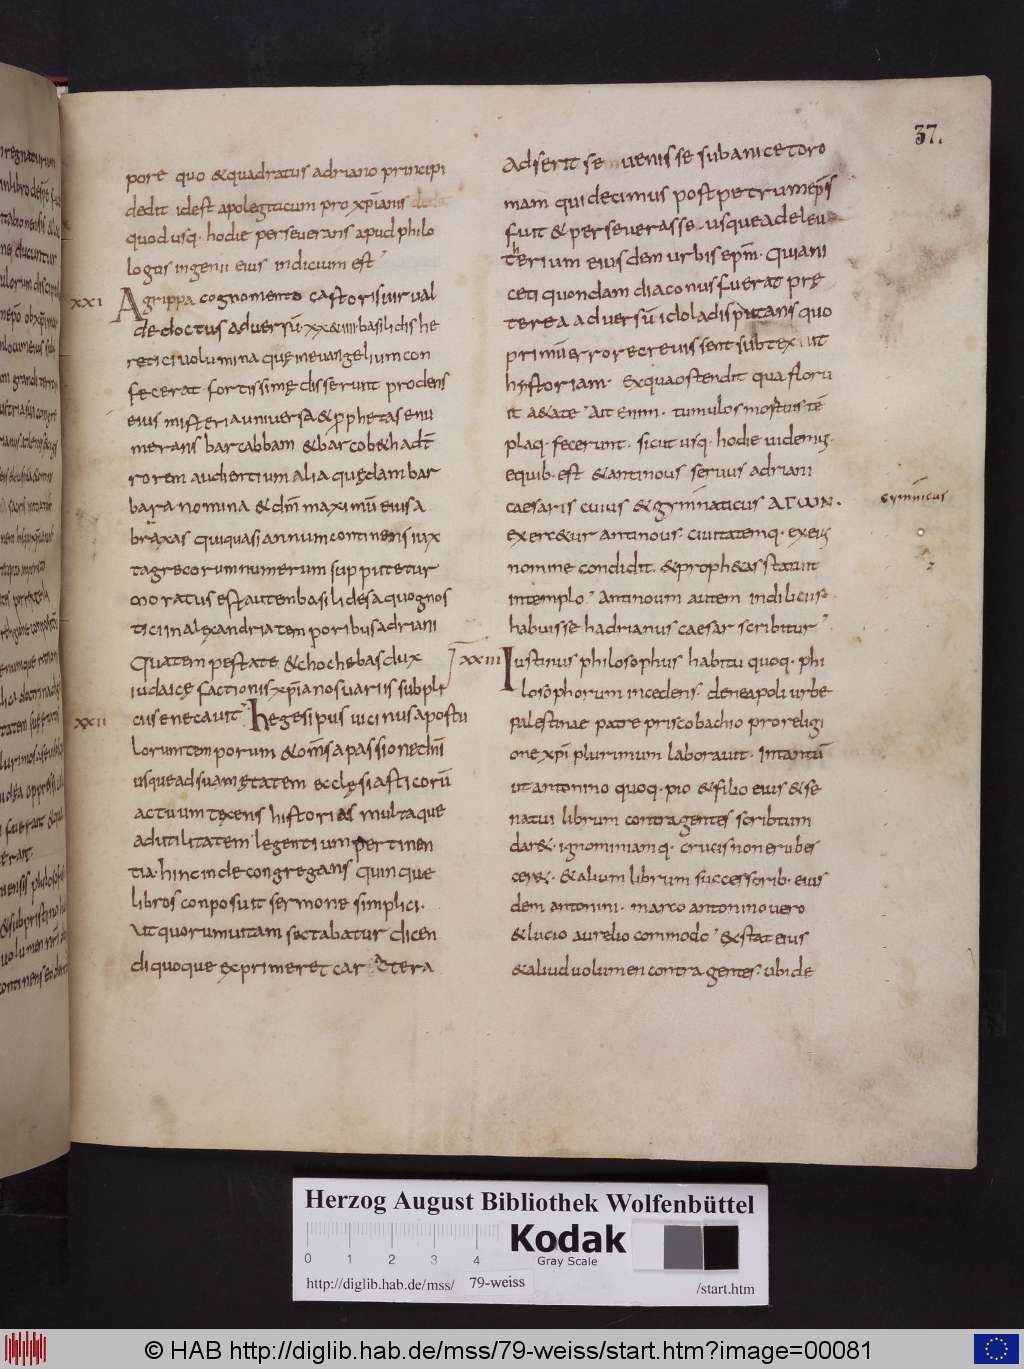 37.
pore quo &quadratus adriano principi
dedit idest apolegiticum pro xp̄ianis
quod usq· hodie perseverans apud philo
logos ingenii eius indicium est
XXI
Agrippa cognomento castoris uir ual
de doctus adversū xx&iiii basilidis he
retici volumina quę in euangelium con
fecerat fortissimę disseruit prodens
eius misteria universa & prophetas enu
merans barcabbam & barcob& ad t̄
rorem audientium alia quędam bar
bara nomina & dm̄ maximū eius a
braxas qui quasi annum continens iux
ta grecorum numerum supputetur
moratus est autem basilides a quo gnos
tici in alexandria temporibus adriani
Qua tempestate & chochebas dux
iudaicę factionis xp̄ianos uariis suppli
XXII
ciis enecauit Hegesipus uicinus apostu
lorum temporum & om̄s a passione dn̄i
usque ad suam ętatem ecclęsiasticorū
actuum texens historias multaque
ad utilitatem legentium pertinen
tia· hinc inde congregans quinque
libros conposuit sermone simplici·
Ut quorum uitam sectabatur dicen
di quoque exprimeret caractera
Adserit se uenisse sub aniceto ro
mam qui decimus post petrum ep̄s
fuit & perseverasse usque ad eleu
therium eiusdem urbis epm̄· Quia ni
ceti quondam diaconus fuerat prę
terea adversū idola disputans quo
primū errore crevissent subtexuit
hystoriam· ex qua ostendit qua floru
it aetate Ait enim· tumulos mortuis tē
plaq· fecerunt· sicut usq· hodie uidemus·
equib· est &antinous servus adriani
caesaris cuius & gymnaticus ΑΓωΝ·
exerc&ur antinous ciuitatemq· ex eius
nomine condidit· & proph&as statuit
in templo Antinoum autem indiliciis
habuisse hadrianus caesar scribitur
XXIII
Iustinus philosophus habitu quoq· phi
losophorum incedens de neapoli urbe
palestinae patre prisco bachio pro religi
one xp̄i plurimum laborauit· Intantū
ut antonino quoq· pio & filio eius & se
natui librum contra gentes scribtum
dar&· ignominiamq· crucis non erubes
cer&· & alium librum successorib· eius
dem antonini· marco antonino vero
& lucio aurelio commodo &stat eius
& aliud uolumen contra gentes· ubi de
gymnicus
Herzog August Bibliothek Wolfenbüttel
0 1 2 3 4
Kodak
Gray Scale
http://diglib.hab.de/mss/ 79-weiss /start.htm
© HAB http://diglib.hab.de/mss/79-weiss/start.htm?image=00081